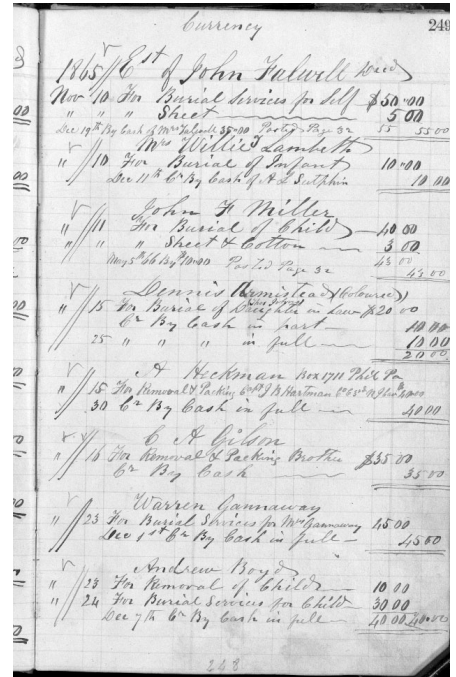 Currency 249
1865 Est of John Falwell Decd
Nov 10 For Burial Services for Self $50.00
" " " Sheet 5 00
Dec 19th By Cash of Mrs Falwell 35.00 Posted Page 32 55 55 00
Mrs Willie J Lambeth
" 10 For Burial of Infant 10.00
Dec 11th Cr By Cash of A L Sutphin 10 00
John F Miller
" 11 For Burial of Child 40 00
" " " Sheet & Cotton 3 00
May 5th 66 By 10.00 Posted Page 32 43 00
43 00
Dennis Armistead (Coloured)
" 15 For Burial of Daughter in Law $20 00
Cr By Cash in part 10 00
25 " " " in full 10 00
20 00
A Heckman Box 1711 Phil Pa
" 15 For Removal & Packing J B Hartman 40 00
30 Cr By Cash in full 40 00
C A Gilson
" 16 For Removal & Packing Brother $35 00
Cr By Cash 35 00
Warren Gannaway
" 23 For Burial Services for Mrs Gannaway 45 00
Dec 1st Cr By Cash in full 45 00
Andrew Boyd
" 23 For Removal of Child 10 00
" 24 For Burial Services for Child 30 00
Dec 7th Cr By Cash in full 40 00 40 00
248